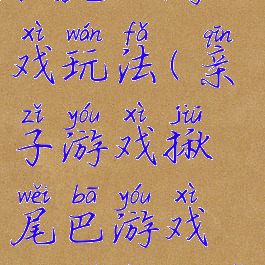 xì wán fǎ qīn
戏玩法(亲
zǐ yóu xì jiū
子游戏揪
wěi bā yóu xì
尾巴游戏